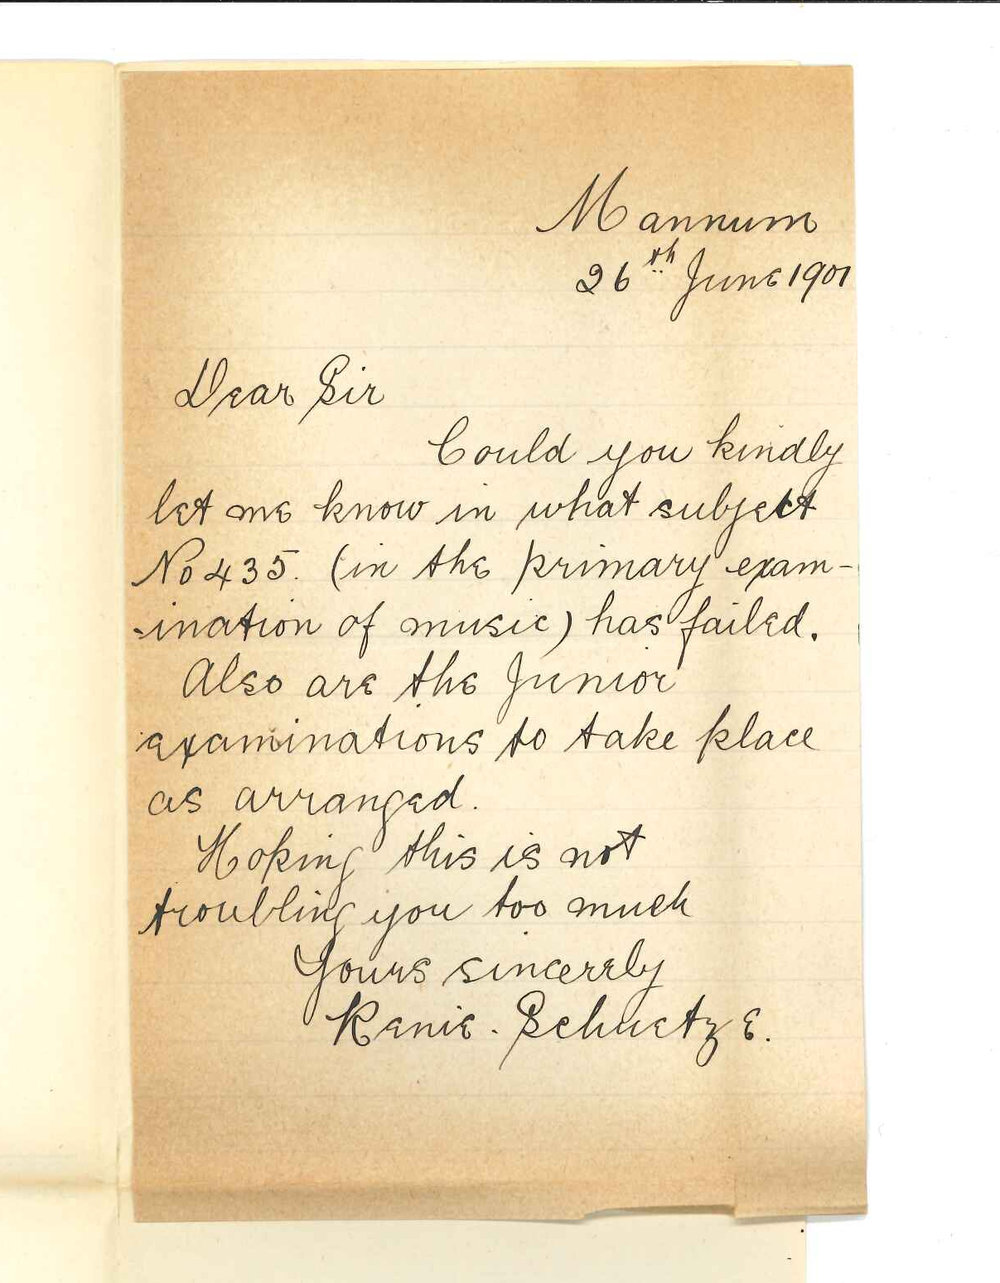 Mannum
26th June 1901
Dear Sir
Could you kindly
let me know in what subject
No 435. (in the primary exam-
-ination of music) has failed.
Also are the Junior
examinations to take place
as arranged.
Hoping this is not
troubling you too much
Yours sincerely
Renie. Schuetze.